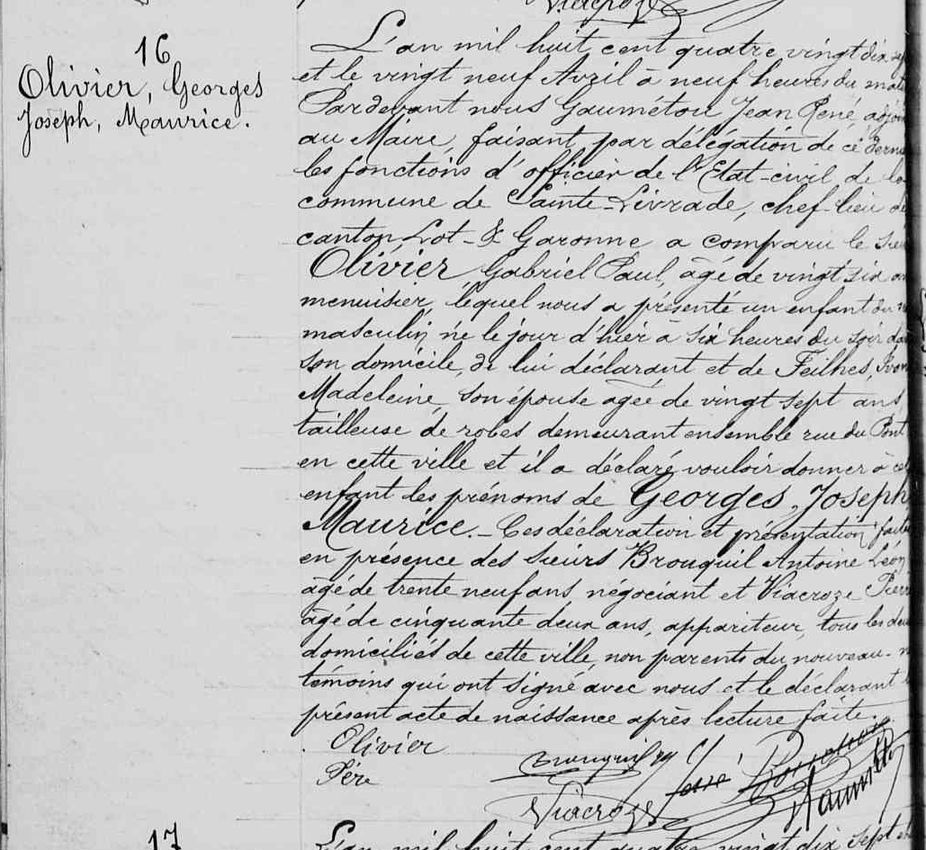 Viacroze
16
Olivier, Georges
Joseph, Maurice.
L'an mil huit cent quatre vingt dix sep
et le vingt neuf Avril à neuf heures du mat
Pardevant nous Gaumétou Jean René, adjoi
au Maire, faisant, par délégation de ce derni
les fonctions d'officier de l'Etat-civil de la
commune de Sainte-Livrade, chef-lieu de
canton Lot-&-Garonne a comparu le sieu
Olivier Gabriel Paul, âgé de vingt six an
menuisier, lequel nous a présenté un enfant du
masculin né le jour d'hier à six heures du soir da
son domicile, de lui déclarant et de Feilhes,
Madeleine son épouse agée de vingt sept ans,
tailleuse de robes demeurant ensemble rue du Pont
en cette ville et il a déclaré vouloir donner à cet
enfant les prénoms de Georges, Joseph,
Maurice._ Ces déclaration et présentation faites
en présence des sieurs Brouquil Antoine Léon
âgé de trente neuf ans, négociant et Viacroze Pierre
âgé de cinquante deux ans, appariteur, tous les deu
domiciliés de cette ville, non parents du nouveau-n
témoins qui ont signé avec nous et le déclarant
présent acte de naissance après lecture faite.
Olivier
Père
Brouquil
Viacroze
17
L'an mil huit cent quatre vingt dix sept et